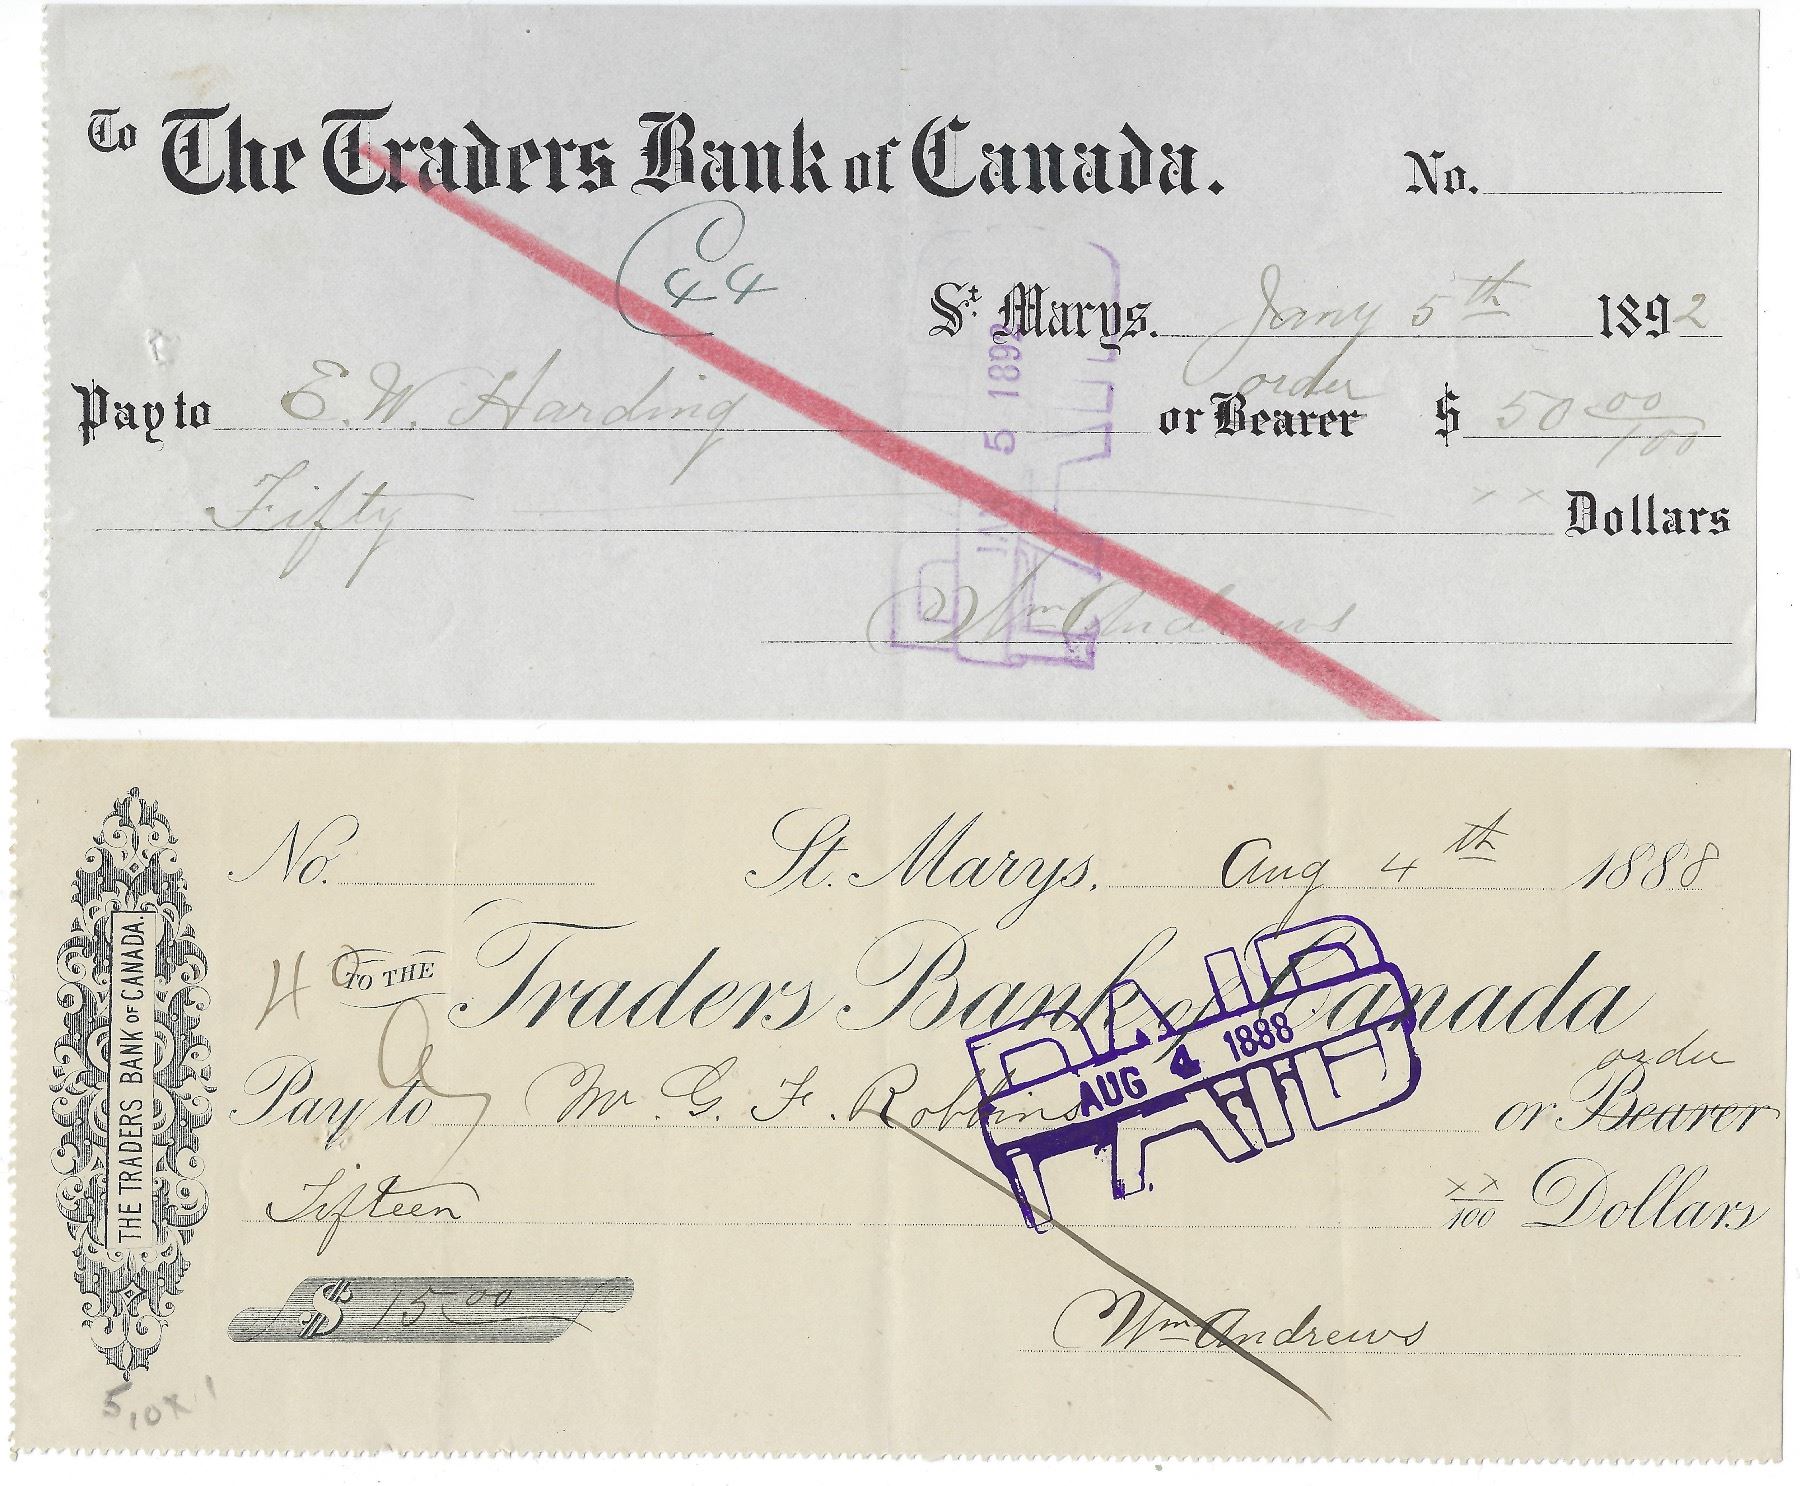 To The Traders Bank of Canada. No.
C 44
St. Marys. Jany 5th 1892
order
Pay to E. W. Harding or Bearer $ 50 00/100
Fifty x x Dollars
JAN 5 1892
PAID
Wm Andrews
No. St. Marys. Aug 4th 1888
TO THE Traders Bank of Canada
order
Pay to Mr G. F. Robbins or Bearer
PAID
AUG 4 1888
PAID
Fifteen xx/100 Dollars
$ 15 00
Wm Andrews
THE TRADERS BANK OF CANADA.